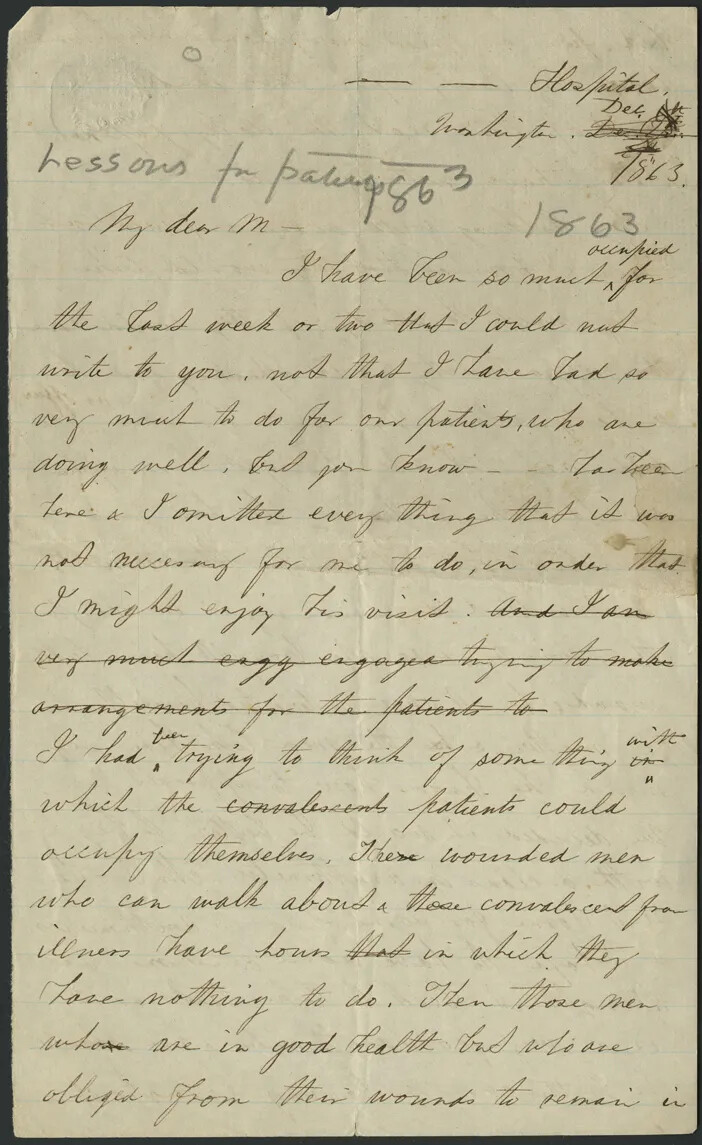 — — Hospital.
Dec.
Washington.
1863.
Lessons for patients
1863
1863
My dear M —
occupied
I have been so much ^ for
the last week or two that I could not
write to you, not that I have had so
very much to do for our patients, who are
doing well, but you know – – has been
here & I omitted every thing that it was
not necessary for me to do, in order that
I might enjoy his visit. And I am
very much engag engaged trying to make
arrangements for the patients to
been with
I had ^ trying to think of some thing in
which the convalescents patients could
occupy themselves. The wounded men
who can walk about & those convalescent from
illness have hours that in which they
have nothing to do. Then those men
who are in good health but who are
obliged from their wounds to remain in